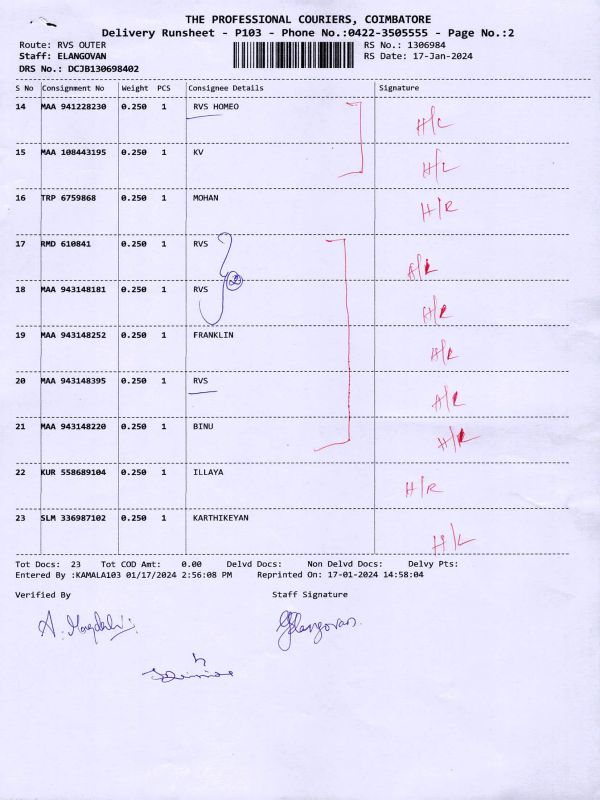 THE PROFESSIONAL COURIERS, COIMBATORE
Delivery Runsheet - P103 - Phone No.:0422-3505555 - Page No.:2
Route: RVS OUTER RS No.: 1306984
Staff: ELANGOVAN RS Date: 17-Jan-2024
DRS No.: DCJB130698402
S No Consignment No Weight PCS Consignee Details Signature
14 MAA 941228230 0.250 1 RVS HOMEO H/L
15 MAA 108443195 0.250 1 KV H/L
16 TRP 6759868 0.250 1 MOHAN H/R
17 RMD 610841 0.250 1 RVS
18 MAA 943148181 0.250 1 RVS
19 MAA 943148252 0.250 1 FRANKLIN
20 MAA 943148395 0.250 1 RVS
21 MAA 943148220 0.250 1 BINU
22 KUR 558689104 0.250 1 ILLAYA H/R
23 SLM 336987102 0.250 1 KARTHIKEYAN H/L
Tot Docs: 23 Tot COD Amt: 0.00 Delvd Docs: Non Delvd Docs: Delvy Pts:
Entered By :KAMALA103 01/17/2024 2:56:08 PM Reprinted On: 17-01-2024 14:58:04
Verified By Staff Signature
Elangovan.